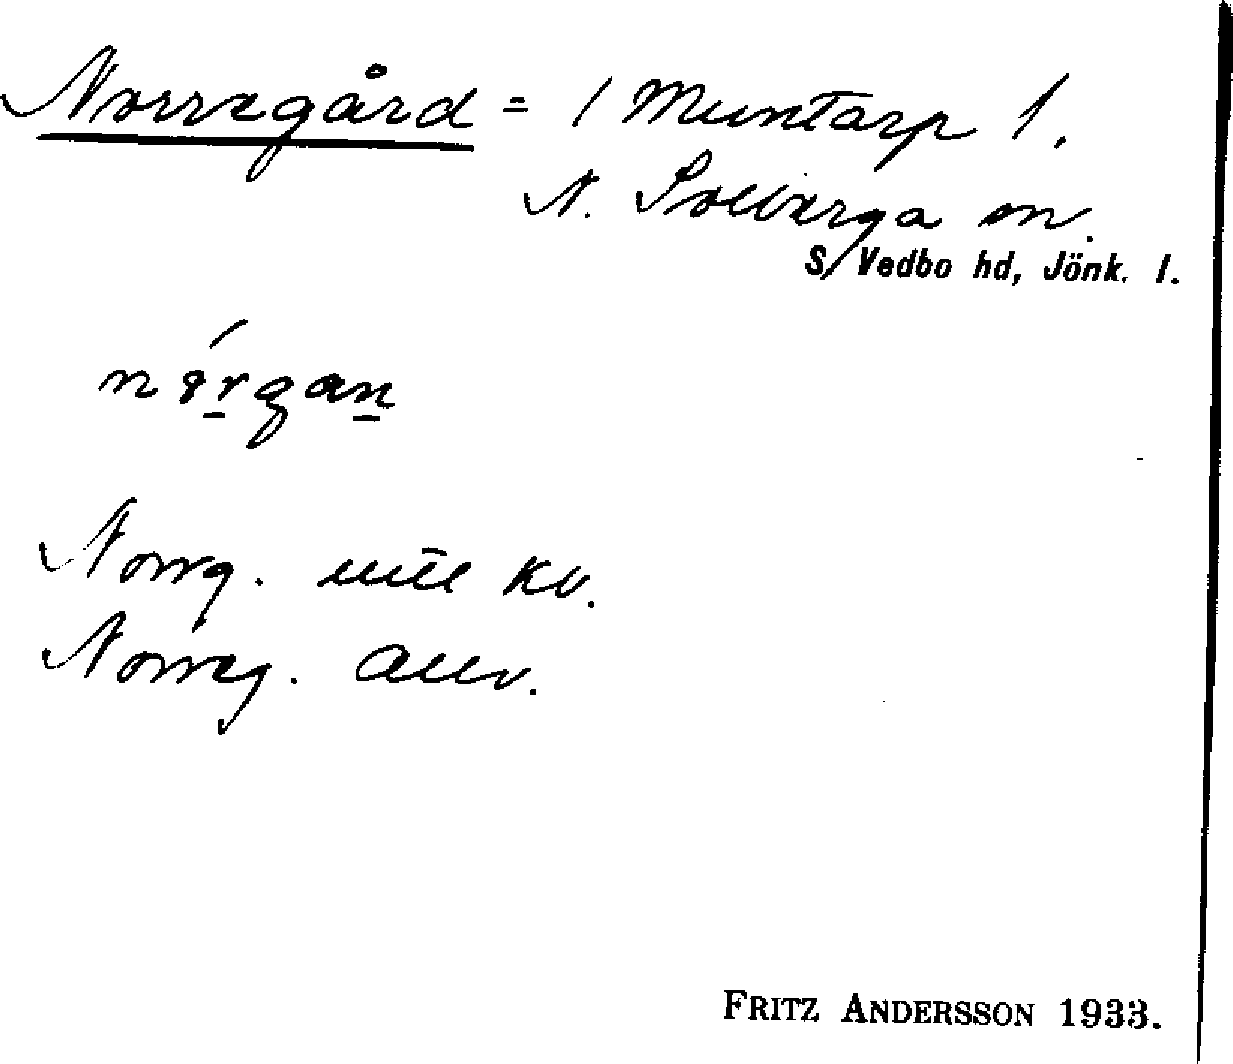 Norregård = 1 Muntarp 1.
N. Solberga sn.
S. Vedbo hd, Jönk. l.
nörgan
Norrg. uttl kv.
Norreg. allv.
FRITZ ANDERSSON 1933.